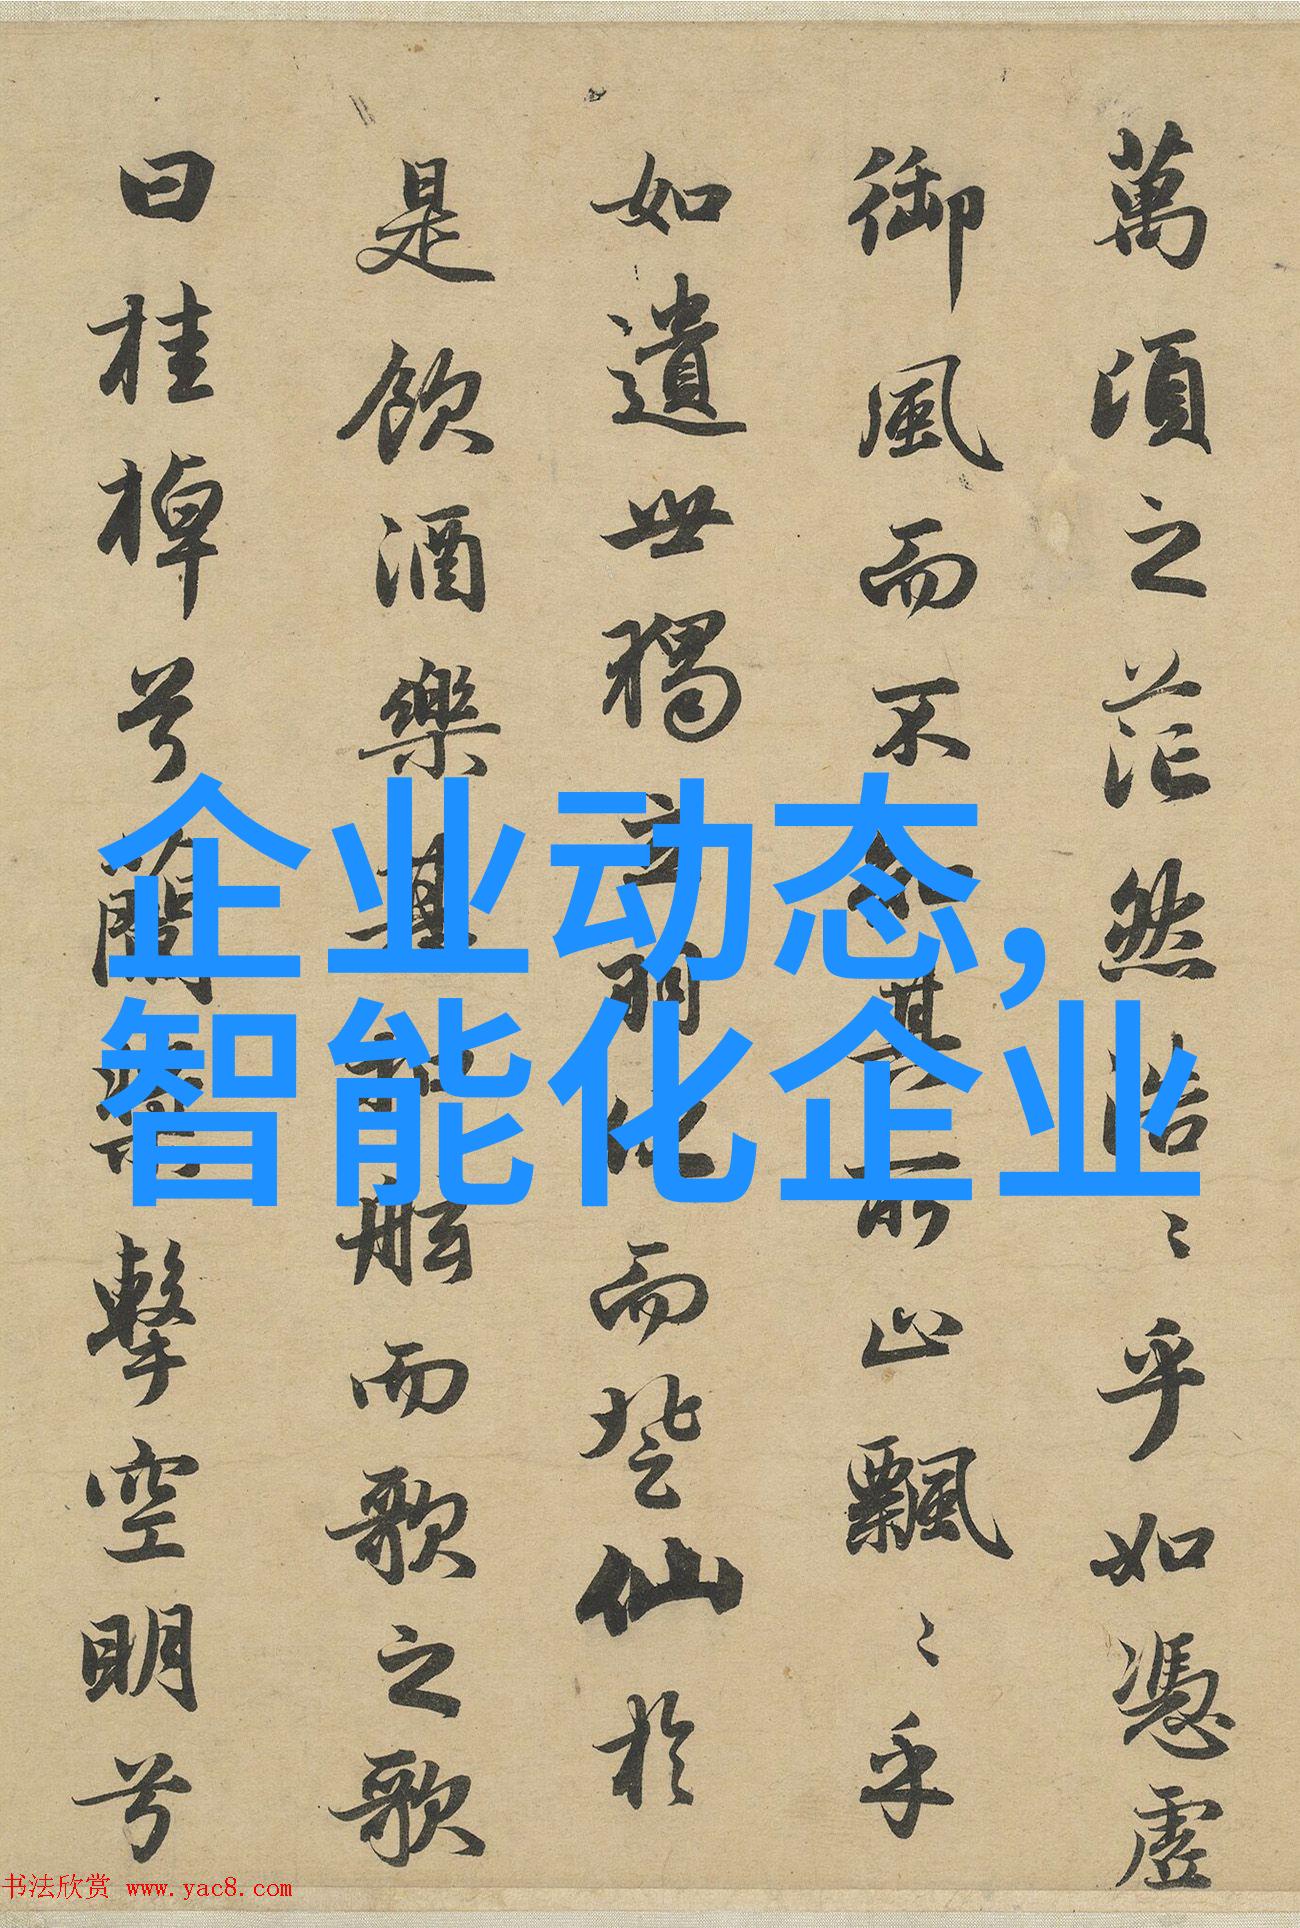 萬頃之茫然浩〻乎如憑虛
御風而不知其所止飄〻乎
如遺世獨立羽化而登仙於
是飲酒樂甚扣舷而歌之歌
曰桂棹兮蘭槳擊空明兮
企业动态,
智能化企业
书法欣赏 www.yac8.com